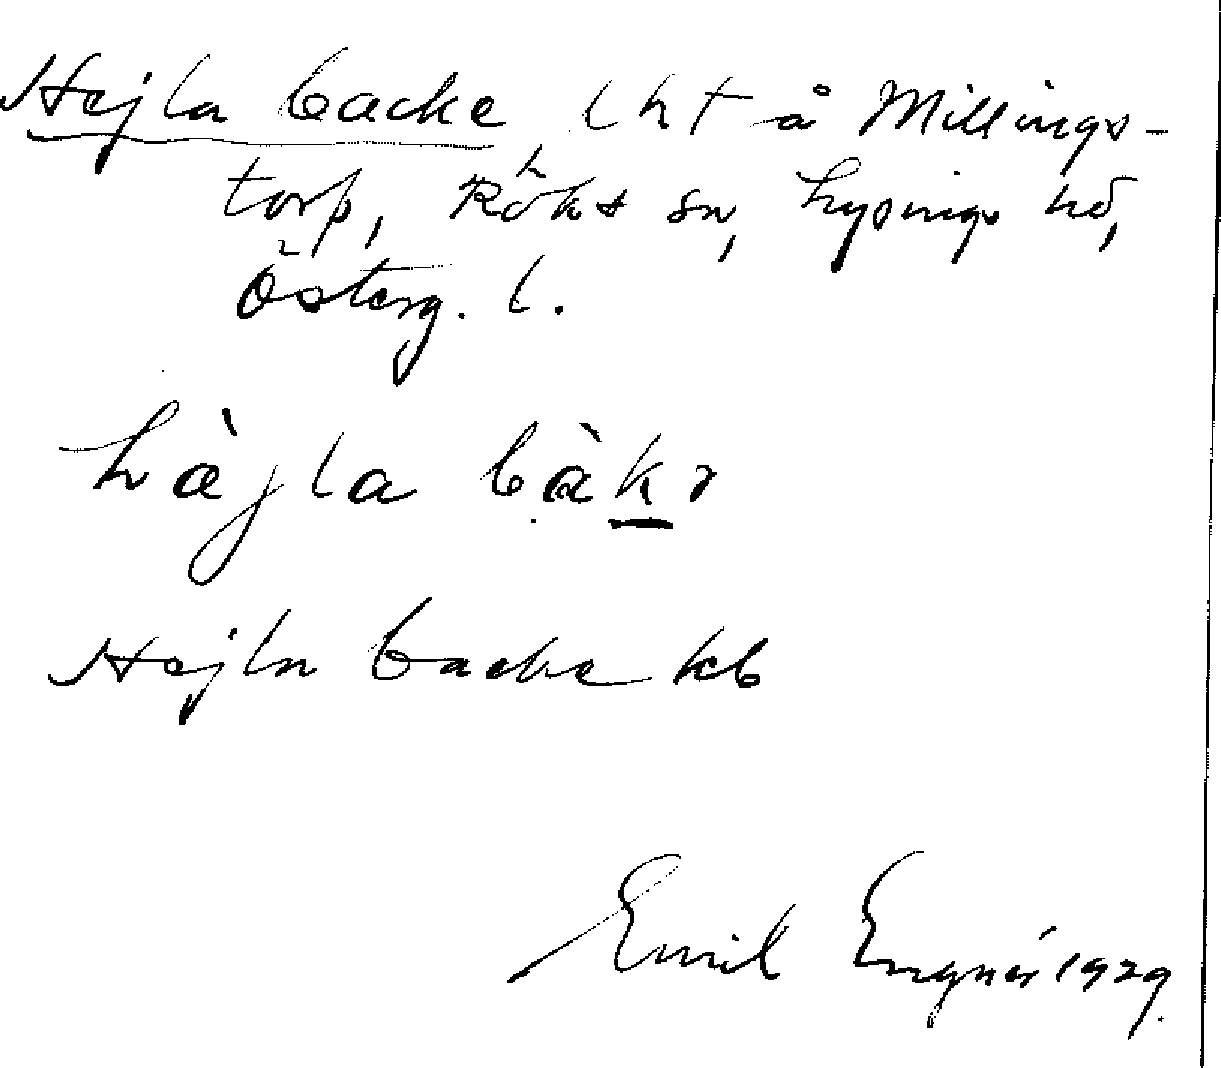 Hejla backe lht å Millings-
torp, Röks sn, Lysings hd,
Österg. l.
hàjla bàkr
Hejla backe kb
Emil Engnér 1929.